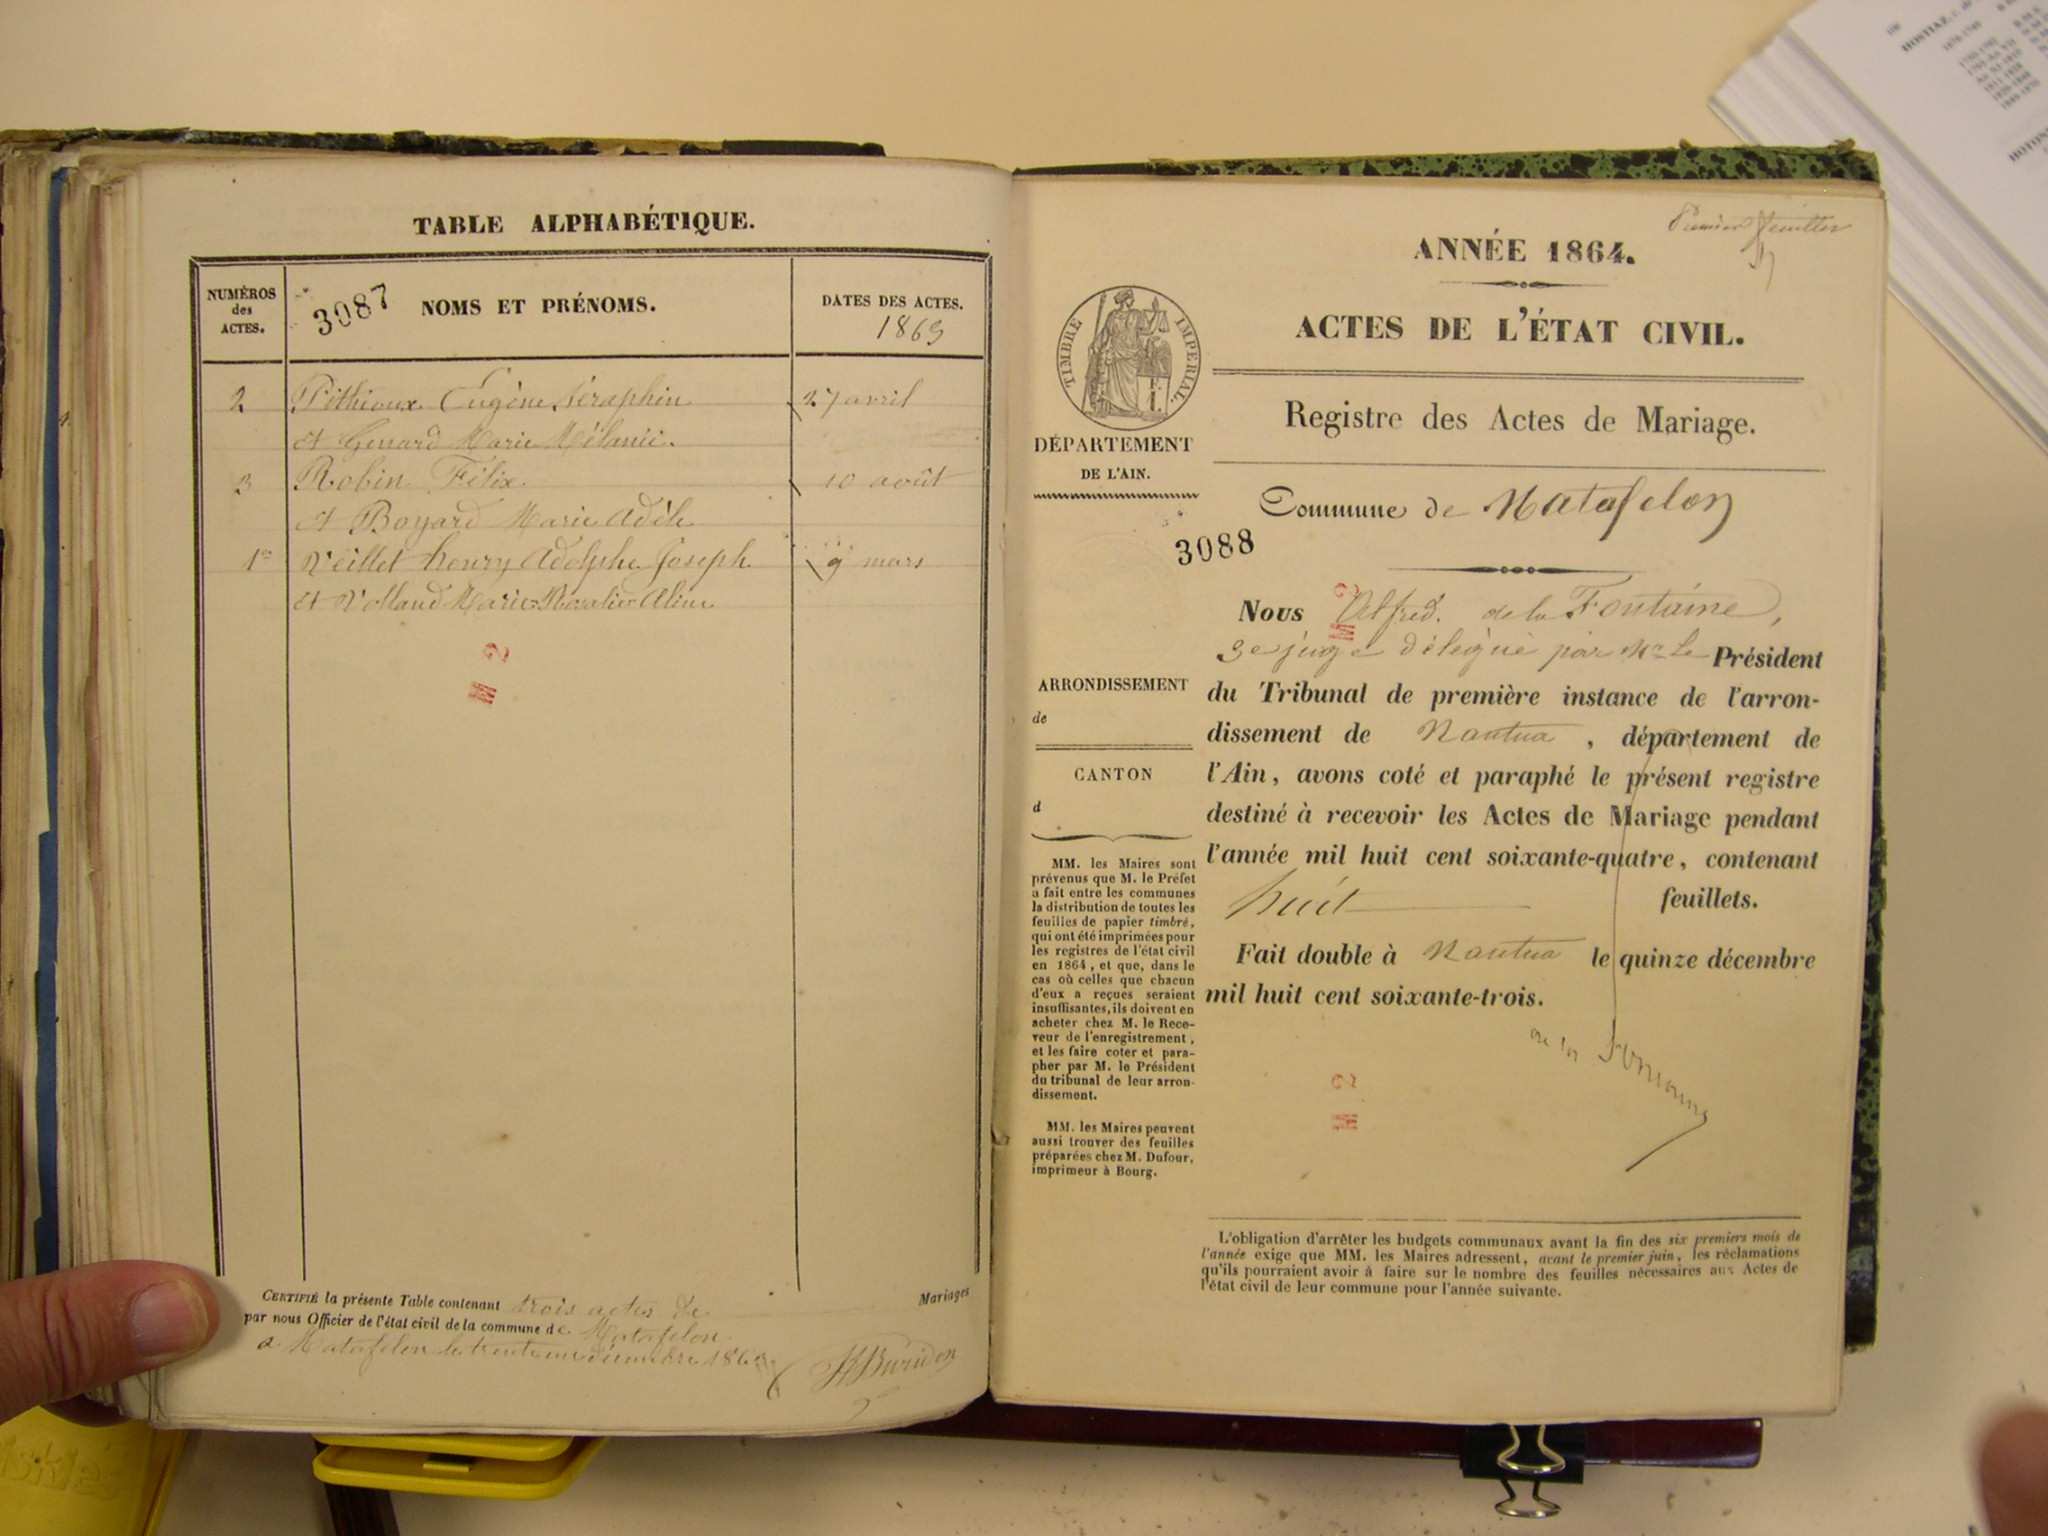 TABLE ALPHABÉTIQUE.
NUMÉROS
des
ACTES.
3087
NOMS ET PRÉNOMS.
DATES DES ACTES.
1863
2 Péthioux Eugène Séraphin 27 avril
et Genard Marie Mélanie.
3 Robin Félix 10 août
et Boyard Marie Adèle
1er Veillet henry Adolphe Joseph 9 mars
et Volland Marie Rosalie Aline
M 2
CERTIFIÉ la présente Table contenant trois actes de Mariages
par nous Officier de l'état civil de la commune de Matafelon
a Matafelon le trente un décembre 1863
Premier feuillet
ANNÉE 1864.
ACTES DE L'ÉTAT CIVIL.
TIMBRE IMPÉRIAL.
Registre des Actes de Mariage.
DÉPARTEMENT
DE L'AIN.
Commune de Matafelon
3088
Nous Alfred de la Fontaine,
3e juge délégué par Mr Le Président
du Tribunal de première instance de l'arron-
dissement de Nantua, département de
l'Ain, avons coté et paraphé le présent registre
destiné à recevoir les Actes de Mariage pendant
l'année mil huit cent soixante-quatre, contenant
huit feuillets.
Fait double à Nantua le quinze décembre
mil huit cent soixante-trois.
de la Fontaine
M 2
M 2
ARRONDISSEMENT
de
CANTON
d
MM. les Maires sont
prévenus que M. le Préfet
a fait entre les communes
la distribution de toutes les
feuilles de papier timbré,
qui ont été imprimées pour
les registres de l'état civil
en 1864, et que, dans le
cas où celles que chacun
d'eux a reçues seraient
insuffisantes, ils doivent en
acheter chez M. le Rece-
veur de l'enregistrement,
et les faire coter et para-
pher par M. le Président
du tribunal de leur arron-
dissement.
MM. les Maires peuvent
aussi trouver des feuilles
préparées chez M. Dufour,
imprimeur à Bourg.
L'obligation d'arrêter les budgets communaux avant la fin des six premiers mois de
l'année exige que MM. les Maires adressent, avant le premier juin, les réclamations
qu'ils pourraient avoir à faire sur le nombre des feuilles nécessaires aux Actes de
l'état civil de leur commune pour l'année suivante.